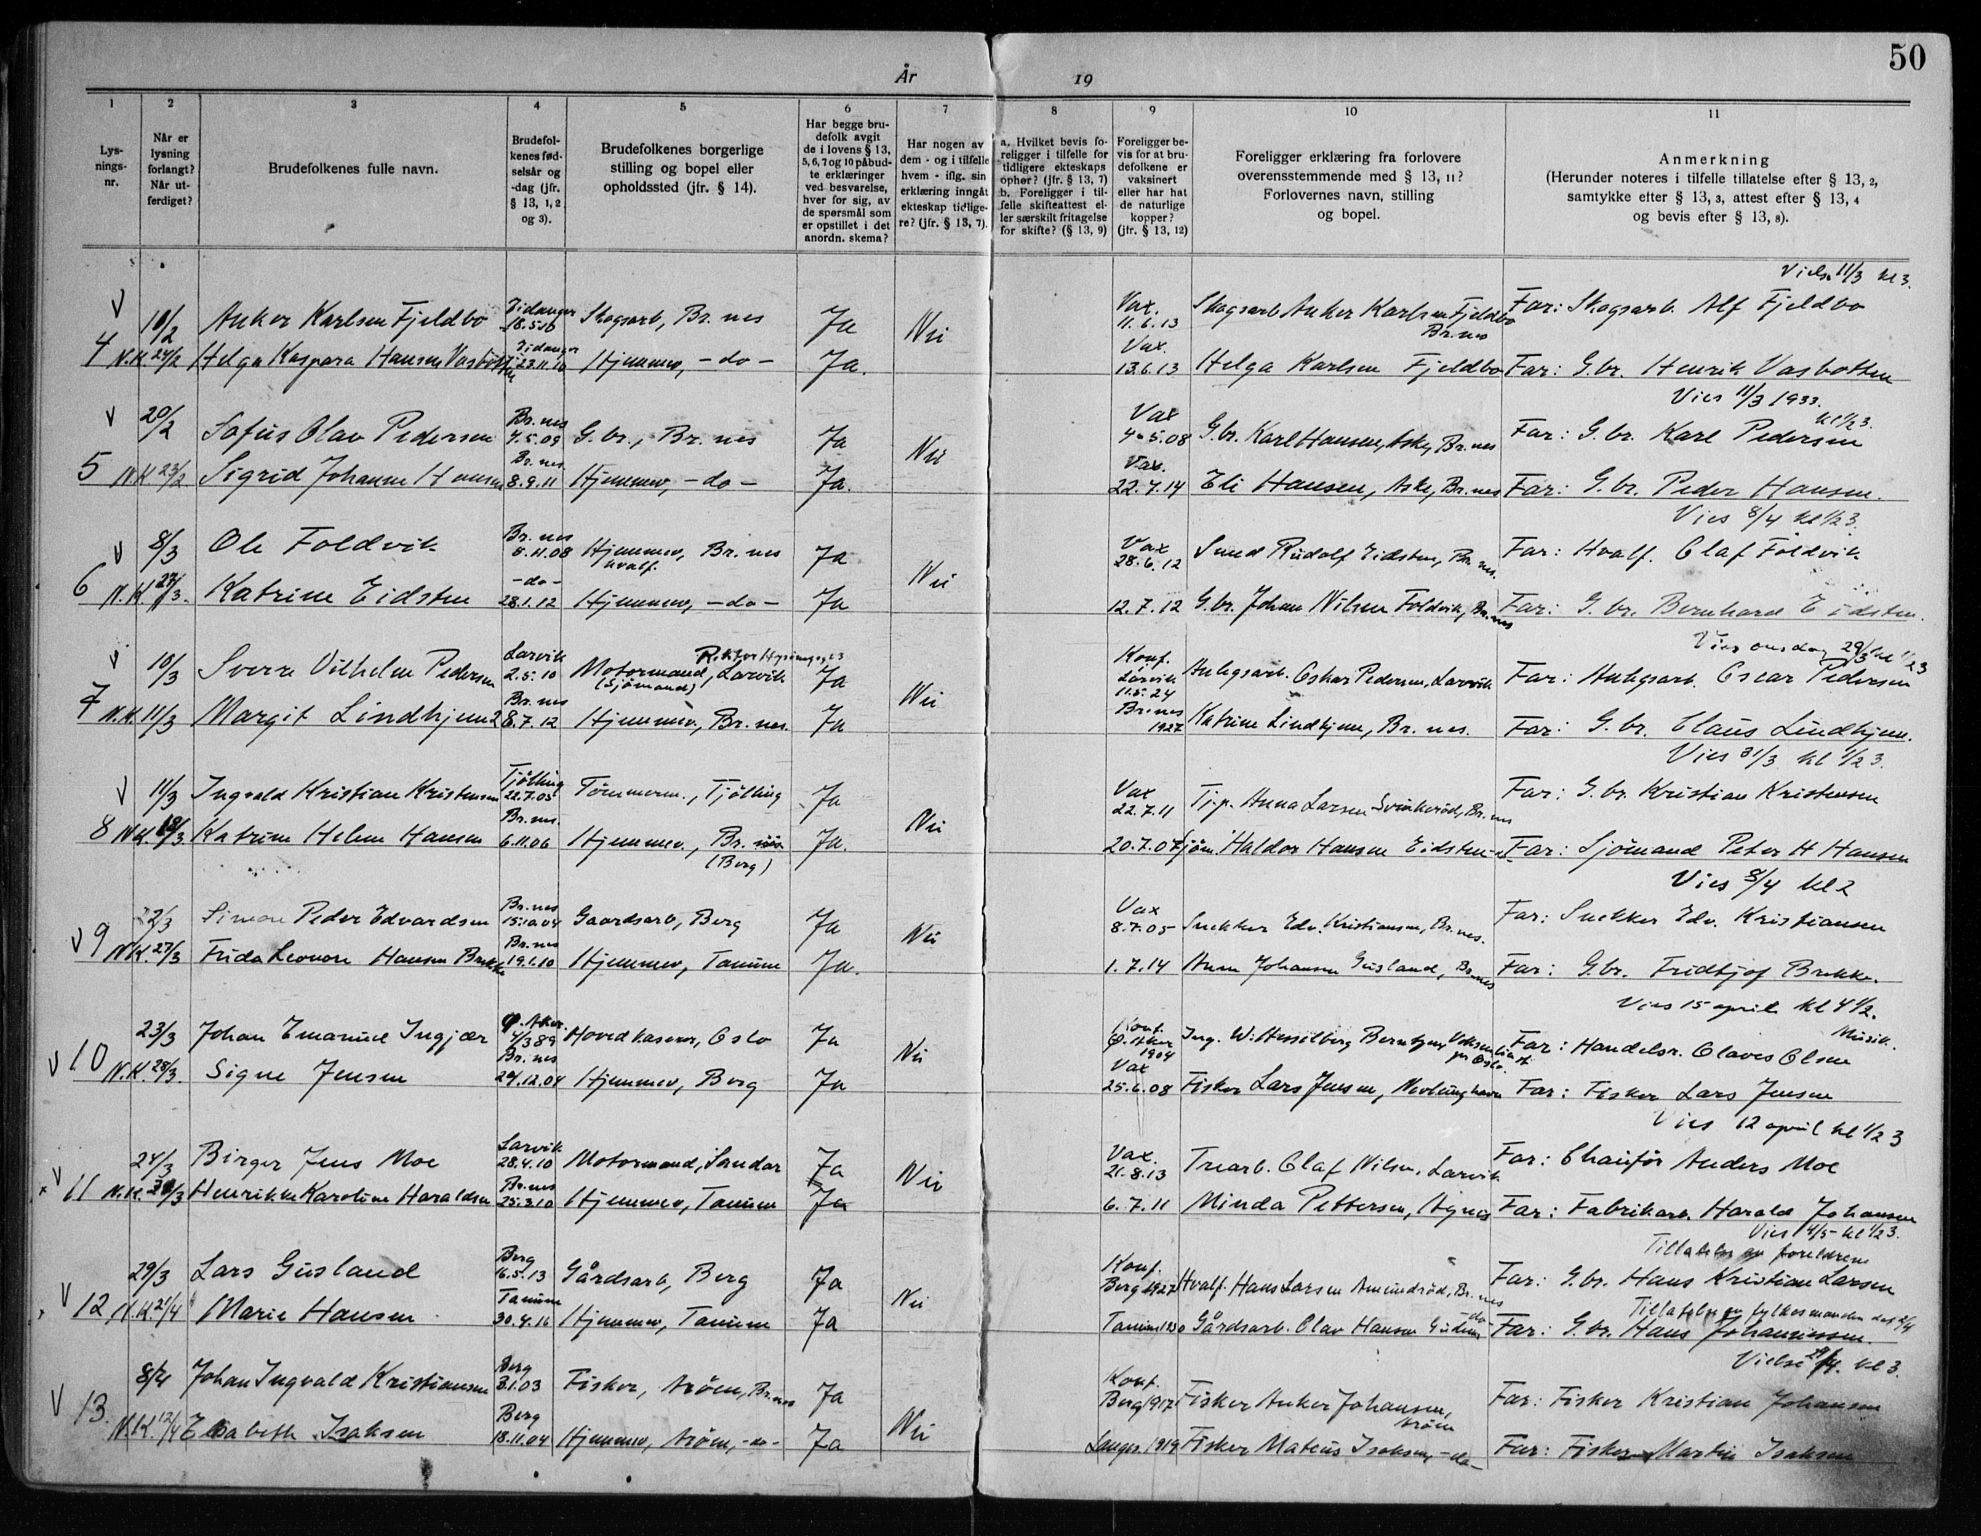 50
År 19
1 2 3 4 5 6 7 8 9 10 11
Lys-
nings-
nr.
Når er
lysning
forlangt?
Når ut-
ferdiget?
Brudefolkenes fulle navn.
Brudefol-
kenes fød-
selsår og
-dag (jfr.
§ 13, 1, 2
og 3).
Brudefolkenes borgerlige
stilling og bopel eller
opholdssted (jfr. § 14).
Har begge bru-
defolk avgit
de i lovens § 13,
5, 6, 7 og 10 påbud-
te erklæringer
ved besvarelse,
hver for sig, av
de spørsmål som
er opstillet i det
anordn. skema?
Har nogen av
dem - og i tilfelle
hvem - iflg. sin
erklæring inngåt
ekteskap tidlige-
re? (jfr. § 13, 7).
a. Hvilket bevis fo-
religger i tilfelle for
tidligere ekteskaps
ophør? (jfr. § 13, 7)
b. Foreligger i til-
felle skifteattest el-
ler særskilt fritagelse
for skifte? (§ 13, 9)
Foreligger be-
vis for at bru-
defolkene er
vaksinert
eller har hat
de naturlige
kopper?
(jfr. § 13, 12)
Foreligger erklæring fra forlovere
overensstemmende med § 13, 11?
Forlovernes navn, stilling
og bopel.
Anmerkning
(Herunder noteres i tilfelle tillatelse efter § 13, 2,
samtykke efter § 13, 3, attest efter § 13, 4
og bevis efter § 13, 8).
Vielse 11/3 kl 3.
V 10/2 Anker Karlsen Fjeldbo Eidanger 18.5.10 Skogsarb, Br.nes Ja Nei Vax. 11.6.13 Skogsarb Anker Karlsen Fjeldbo Br.nes Far: Skogsarb. Alf Fjeldbo
4 N.K. 24/2 Helga Kaspara Hansen Vasbotten Eidanger 23.11.10 Hjemmev, -do- Ja. Vax. 13.6.13 Helga Karlsen Fjeldbo Far: G.br. Henrik Vasbotten
Vies 11/3 1933. kl 1/2 3.
V 20/2 Sofus Olav Pedersen Br.nes 7.5.09 G.br., Br.nes Ja Nei Vax 4.5.08 G.br. Karl Hansen, Aske, Br.nes Far: G.br. Karl Pedersen
5 N.K 23/2 Sigrid Johanne Hansen Br.nes. 8.9.11 Hjemmev, -do- Ja. Vax. 22.7.14 Eli Hansen, Aske, Br.nes Far: G.br. Peder Hansen.
Vies 8/4 kl 1/2 3.
V 8/3 Ole Foldvik Br.nes 8.11.08 Hjemmev, Br.nes hvalf. Ja Nei Vax 28.6.12 Smed Rudolf Eidsten, Br.nes. Far: Hvalf. Olaf Foldvik
6 N.K. 27/3. Katrine Eidsten -do- 28.1.12 Hjemmev, -do- Ja 12.7.12 G.br. Johan Nilsen Foldvik, Br.nes Far: G.br. Bernhard Eidsten.
Vies onsdag 29/3 kl 1/2 3
V 10/3 Sverre Vilhelm Pedersen Larvik 2.5.10 Motormand, Larvik (Sjömand) Ja Nei Konf. Larvik 11.5.24 Anlegsarb. Oskar Pedersen, Larvik Far: Anlegsarb. Oscar Pedersen
7 N.K. 11/3 Margit Lindhjem Br.nes 28.7.12 Hjemmev, Br.nes. Ja Br.nes 1927 Katrine Lindhjem, Br.nes. Far: G.br. Claus Lindhjem.
Vies 31/3 kl 1/2 3.
V 11/3 Ingvald Kristian Kristensen Tjölling 22.7.05 Tömmerm., Tjölling Ja Nei Vax 22.7.11 Tj.p. Anna Larsen Svinkeröd, Br.nes Far: G.br. Kristian Kristensen
8 N.K. 18/3. Katrine Helene Hansen Br.nes. 6.11.06 Hjemmev, Br.nes (Berg) Ja. 20.7.07 Sjöm. Haldor Hansen Eidsten Far: Sjömand Peter H Hansen
Vies 8/4 kl 2
V 9 22/3 Simon Peder Edvardsen Br.nes 15.10.04 Gaardsarb, Berg Ja Nei Vax 8.7.05 Snekker Edv. Kristiansen, Br.nes. Far: Snekker Edv. Kristiansen
N.K. 27/3 Frida Leonore Hansen Brekke Br.nes 19.1.10 Hjemmev, Tanum Ja. 1.7.14 Anna Johansen Gusland, Br.nes Far: G.br. Fridtjof Brekke.
Vies 15 april kl 4 1/2.
V 10 23/3 Johan Emanuel Ingjær Ø. Aker. 4/3 89 Hovedkasser, Oslo Ja Nei Konf. Ø. Aker 1904 Ing. W. Hesselberg Berntzen, Voksenlia pr Oslo Far: Handelsr. Olaves Olsen Musik.
N.K. 28/3. Signe Jensen Br.nes 24.12.04 Hjemmev, Berg Ja Vax 25.6.08 Fisker Lars Jensen, Nevlunghavn Far: Fisker Lars Jensen
Vies 12 april kl 1/2 3
V 11 24/3 Birger Jens Moe Larvik 28.4.10 Motormand, Sandar Ja Nei Vax. 21.8.13 Trearb. Olaf Nilsen, Larvik Far: Chauför Anders Moe
N.K. 3 Henrikke Karoline Haraldsen Br.nes 25.3.10 Hjemmev, Tanum Ja 6.7.11 Minda Pettersen, Agnes Far: Fabrikarb. Harald Johansen
Vies 4/5 kl 1/2 3.
Tillatelse av foreldrene
V 12 29/3 Lars Gusland Berg 16.5.13 Gårdsarb, Berg Ja Nei Konf. Berg 1927 Hvalf. Hans Larsen Amundröd, Br.nes Far: G.br. Hans Kristian Larsen
Tillatelse av fylkesmanden
N.K. 21/4 Marie Hansen Tanum 30.4.16 Hjemmev, Tanum Ja Tanum 1930 Gårdsarb. Olav Hansen -do- Far: G.br. Hans Johannessen.
Vielse 29/4. kl 3.
V 13. 8/4 Johan Ingvald Kristiansen Berg 3.1.03 Fisker, Aröen, Br.nes Ja Nei Konf. Berg 1917 Fisker Anker Johansen, Aröen Far: Fisker Kristian Johansen
N.K. 12/4 Elisabeth Isaksen Berg 18.11.04 Hjemmev, Aröen, -do- Ja Langes. 1919 Fisker Mateus Isaksen, -do- Far: Fisker Martin Isaksen